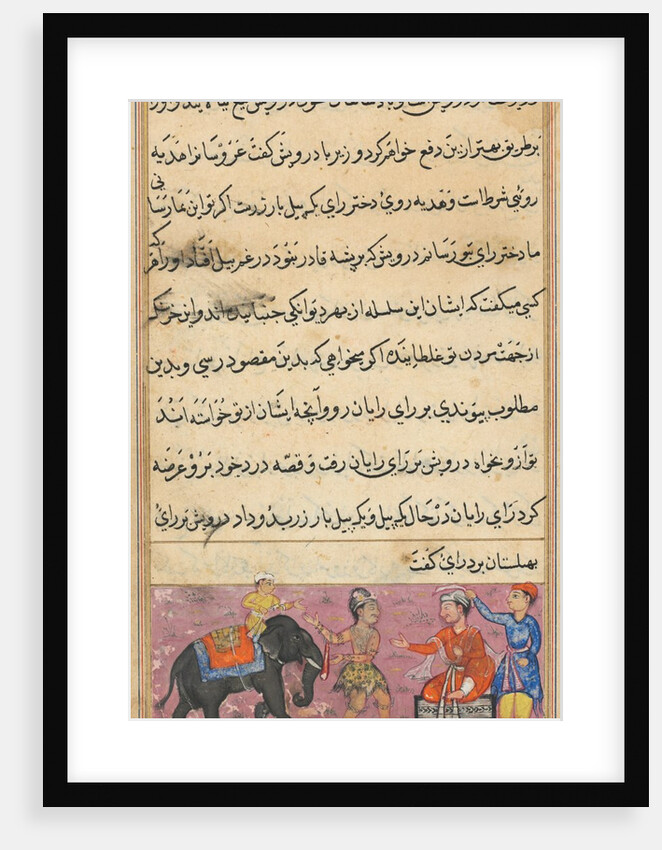 بر طریق بهتر ازین دفع خواهم کرد وزیر با درویش گفت عروسانرا هدیه
روئی شرطاست و هدیه روی دختر رای یک پیل بار زرست اکر تو این بما رسانی
ما دختر رای بتو رسانیم درویش که بر پشه قادر نبود در غم پیل افتاد او را هر
کسی میکفت که ایشان این سلسله از بهر دیوانکی جنبانیده اند و این خرسنک
از جهت مردن تو غلطانیده اکر میخواهی که بدین مقصود رسی و بدین
مطلوب پیوندی بر رای رایان رو و آنچه ایشان از تو خواسته اند
تو ازو بخواه درویش بر رای رایان رفت و قصه درد خود برو عرضه
کرد رای رایان در حال یک پیل و یک پیل بار زر بدو داد درویش بر رای
بهلستان برد رای گفت